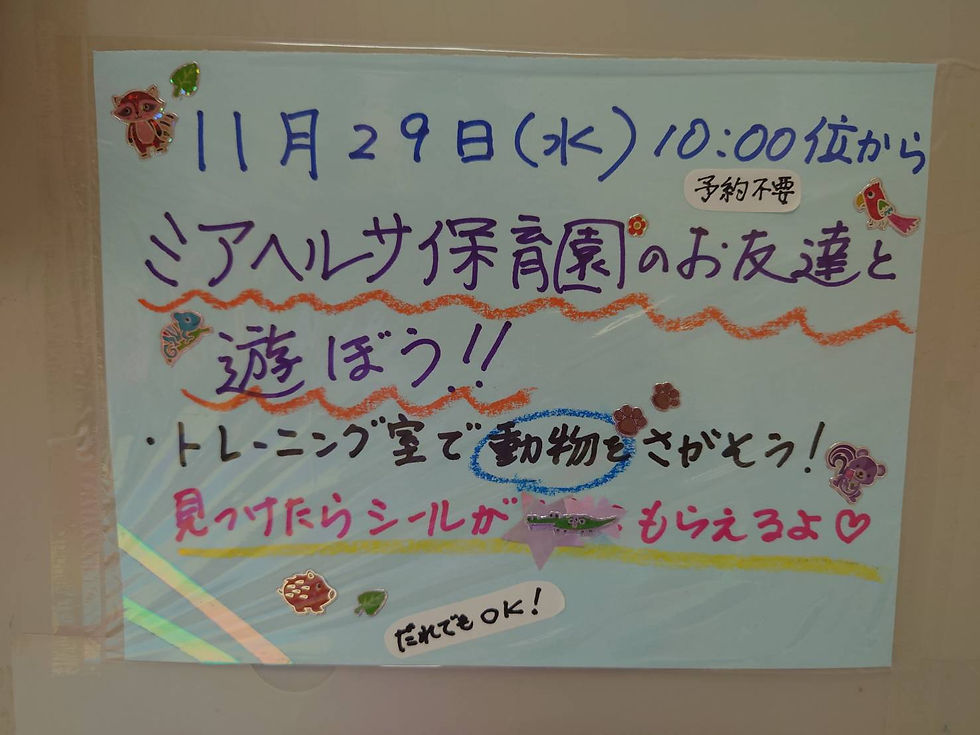 11月29日(水)10:00位から
予約不要
ミアヘルサ保育園のお友達と
遊ぼう!!
・トレーニング室で動物をさがそう!
見つけたらシールがもらえるよ♡
だれでもOK!